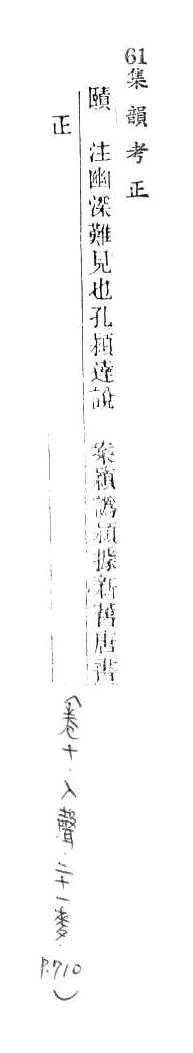 61集韻考正
賾 注幽深難見也孔頴達說 案穎譌頴據新舊唐書
正
(卷十·入聲·二十一麥·P.710)